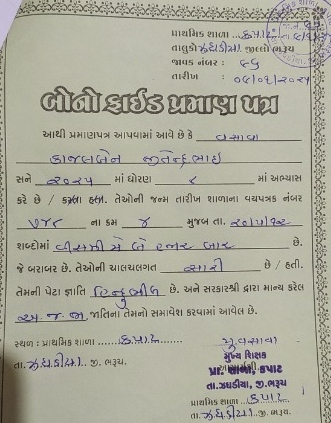 પ્રાથમિક શાળા ... કપાટ
તાલુકો ઝઘડીયા જીલ્લો ભરૂચ
જાવક નંબર : ૯૬
તારીખ : ૦૯/૦૧/૨૦૨૫
બોનોફાઈડ પ્રમાણ પત્ર
આથી પ્રમાણપત્ર આપવામાં આવે છે કે વસાવા
કાજલબેન જીતેન્દ્રભાઈ
સને ૨૦૨૫ માં ધોરણ માં અભ્યાસ
કરે છે / કરતા હતા. તેઓની જન્મ તારીખ શાળાના વયપત્રક નંબર
ના ક્રમ ૪ મુજબ તા. ૨૦/૫/૧૨
શબ્દોમાં વીસમી મે બે હજાર બાર છે.
જે બરાબર છે. તેઓની ચાલચલગત સારી છે / હતી.
તેમની પેટા જ્ઞાતિ હિન્દુ ભીલ છે. અને સરકારશ્રી દ્વારા માન્ય કરેલ
અ.જ.જા. જાતિના તેમનો સમાવેશ કરવામાં આવેલ છે.
સ્થળ : પ્રાથમિક શાળા ...... કપાટ ......
મુખ્ય શિક્ષક
તા. ઝઘડીયા. જી. ભરૂચ.
પ્રા. શાળા, કપાટ
તા.ઝઘડીયા, જી.ભરૂચ
પ્રાથમિક શાળા કપાટ
તા. ઝઘડીયા જી. ભરૂચ.